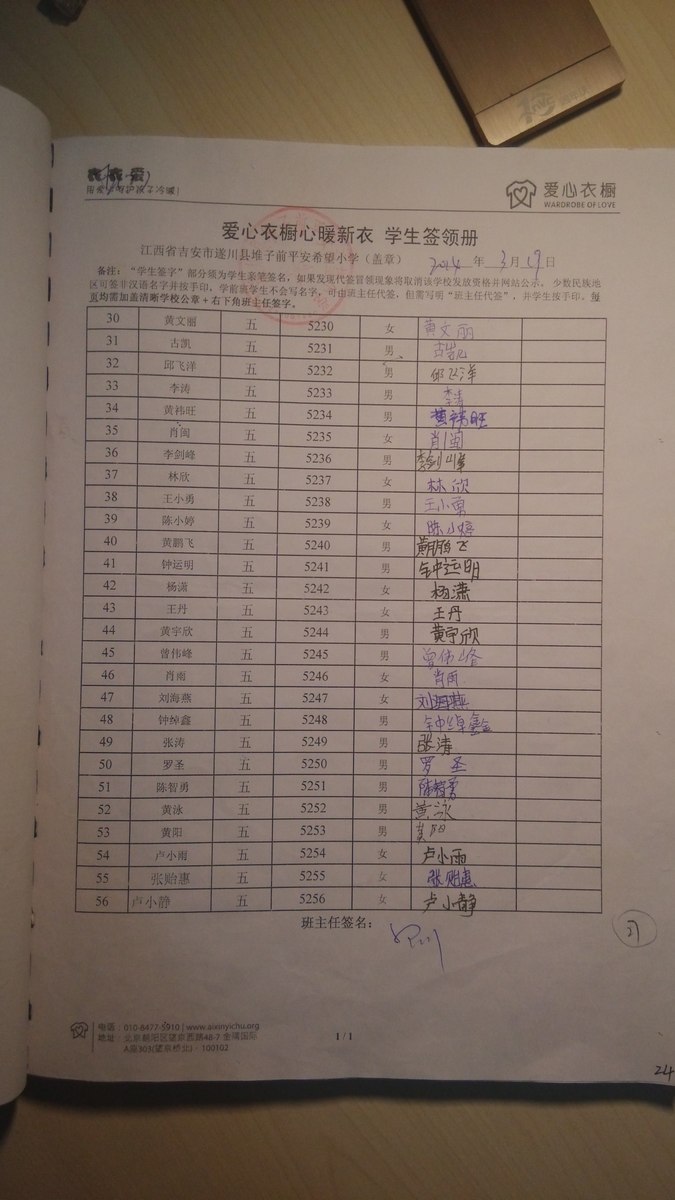 衣衣爱
爱心衣橱
WARDROBE OF LOVE
爱心衣橱心暖新衣 学生签领册
江西省吉安市遂川县堆子前平安希望小学（盖章） 2014 年 3 月 17 日
备注：“学生签字”部分须为学生亲笔签名，如果发现代签冒领现象将取消该学校发放资格并网站公示。少数民族地
区可签非汉语名字并按手印。学前班学生不会写名字，可由班主任代签，但需写明“班主任代签”，并学生按手印。每
页均需加盖清晰学校公章+右下角班主任签字。
30 黄文丽 五 5230 女 黄文丽
31 古凯 五 5231 男 古凯
32 邱飞洋 五 5232 男 邱飞洋
33 李涛 五 5233 男 李涛
34 黄祎旺 五 5234 男 黄祎旺
35 肖闽 五 5235 女 肖闽
36 李剑峰 五 5236 男 李剑峰
37 林欣 五 5237 女 林欣
38 王小勇 五 5238 男 王小勇
39 陈小婷 五 5239 女 陈小婷
40 黄鹏飞 五 5240 男 黄鹏飞
41 钟运明 五 5241 男 钟运明
42 杨潇 五 5242 女 杨潇
43 王丹 五 5243 女 王丹
44 黄宇欣 五 5244 男 黄宇欣
45 曾伟峰 五 5245 男 曾伟峰
46 肖雨 五 5246 女 肖雨
47 刘海燕 五 5247 女 刘海燕
48 钟绰鑫 五 5248 男 钟绰鑫
49 张涛 五 5249 男 张涛
50 罗圣 五 5250 男 罗圣
51 陈智勇 五 5251 男 陈智勇
52 黄泳 五 5252 男 黄泳
53 黄阳 五 5253 男 黄阳
54 卢小雨 五 5254 女 卢小雨
55 张贻惠 五 5255 女 张贻惠
56 卢小静 五 5256 女 卢小静
班主任签名：
27
电话：010-8477-5910 | www.aixinyichu.org
地址：北京朝阳区望京西路48-7 金隅国际
A座303(望京桥北) · 100102
1 / 1
24